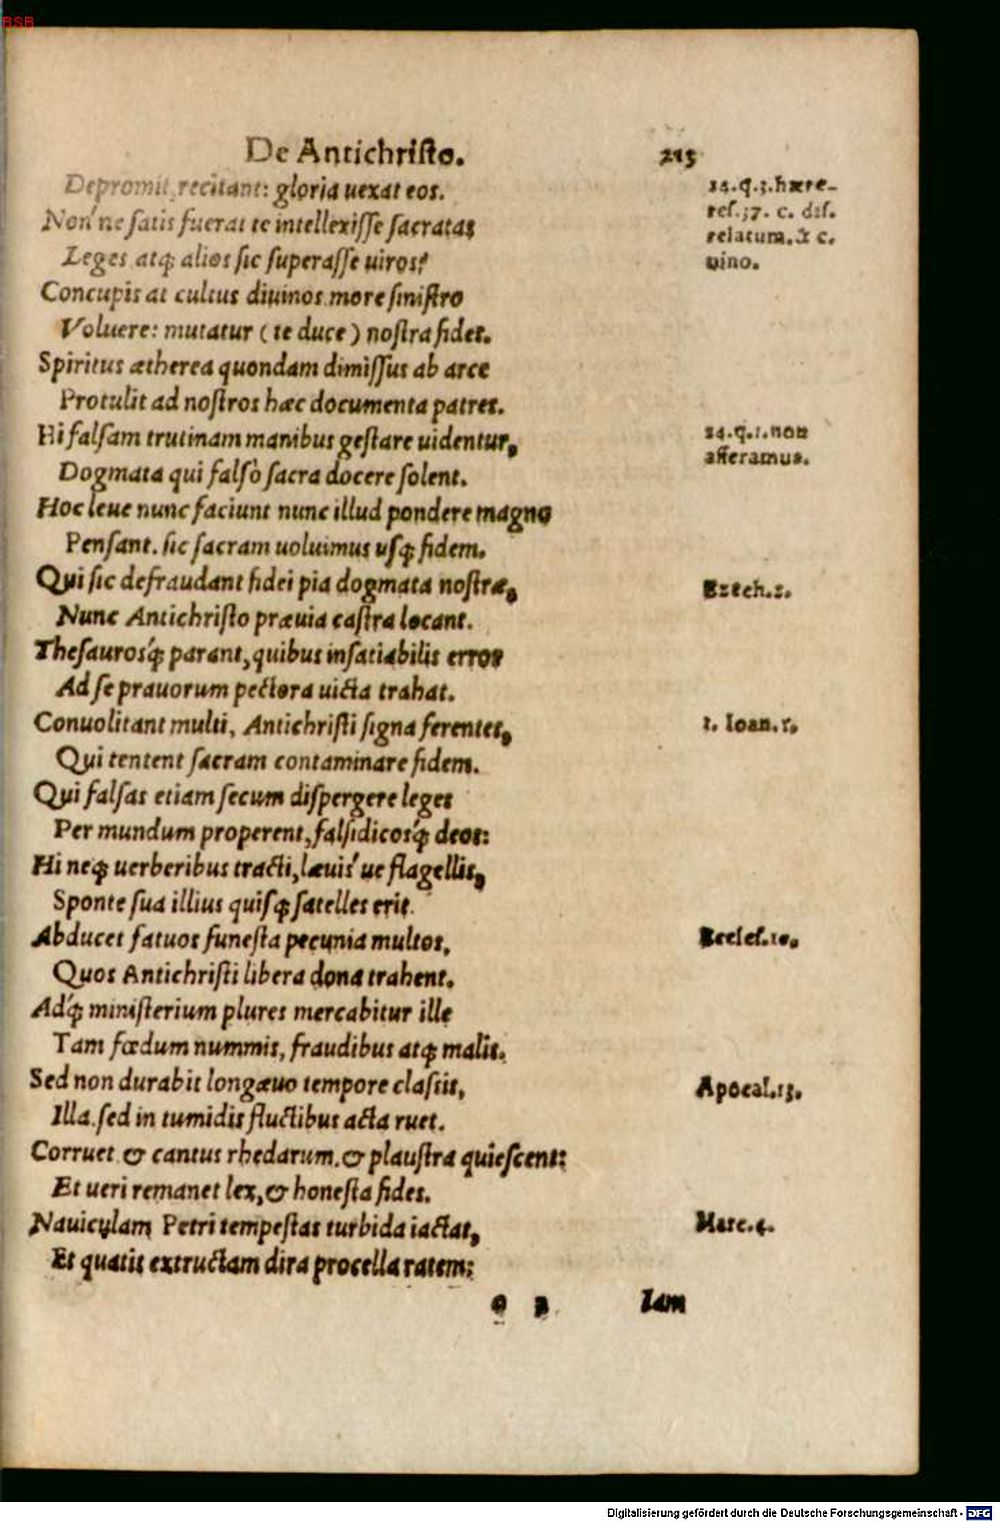 BSB
De Antichristo. 215
Depromit, recitant: gloria uexat eos.
Non'ne satis fuerat te intellexisse sacratas
Leges atq; alios sic superasse uiros?
Concupis at cultus diuinos more sinistro
Voluere: mutatur (te duce) nostra fides.
Spiritus ætherea quondam dimissus ab arce
Protulit ad nostros hæc documenta patres.
Hi falsam trutinam manibus gestare uidentur,
Dogmata qui falsò sacra docere solent.
Hoc leue nunc faciunt nunc illud pondere magno
Pensant. sic sacram uoluimus usq; fidem.
Qui sic defraudant fidei pia dogmata nostræ,
Nunc Antichristo præuia castra locant.
Thesaurosq́; parant, quibus insatiabilis error
Ad se prauorum pectora uicta trahat.
Conuolitant multi, Antichristi signa ferentes,
Qui tentent sacram contaminare fidem.
Qui falsas etiam secum dispergere leges
Per mundum properent, falsidicosq́; deos:
Hi neq; uerberibus tracti, læuis'ue flagellis,
Sponte sua illius quisq; satelles erit.
Abducet fatuos funesta pecunia multos,
Quos Antichristi libera dona trahent.
Adq́; ministerium plures mercabitur ille
Tam fœdum nummis, fraudibus atq; malis.
Sed non durabit longæuo tempore classis,
Illa. sed in tumidis fluctibus acta ruet.
Corruet & cantus rhedarum, & plaustra quiescent:
Et ueri remanet lex, & honesta fides.
Nauiculam Petri tempestas turbida iactat,
Et quatit extructam dira procella ratem:
24.q.3.hære-
res.37. c. dis.
relatum. & c.
uino.
24.q.1.non
afferamus.
Ezech.
1. Ioan.
Ecclef.10.
Apocal.13.
Marc.4.
o Iam
Digitalisierung gefördert durch die Deutsche Forschungsgemeinschaft - DFG